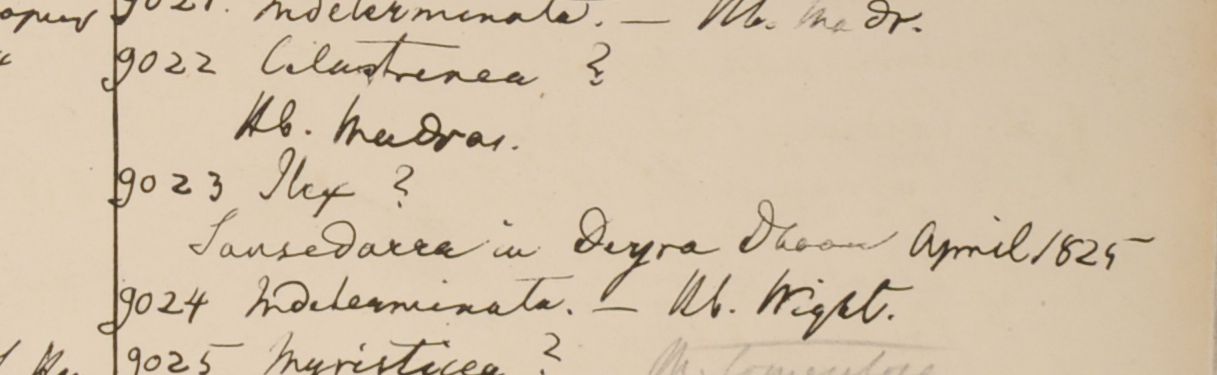 9021. Indeterminata. — Hb. Madr.
9022 Celastrenea ?
Hb. Madras.
9023 Ilex ?
Sansedarra in Deyra Dhoon April 1825
9024 Indeterminata. — Hb. Wight.
9025 Myristicea ?